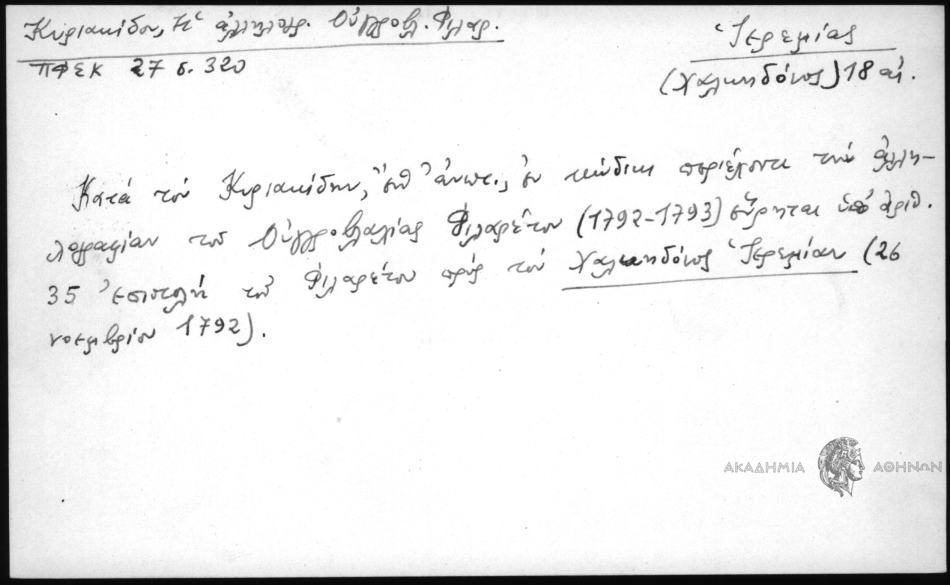 Κυριακίδου, Ἡ ἀλληλογρ. Οὑγγροβλ. Φιλαρ.
ΠΦΣΚ 27 σ. 320
Ἱερεμίας
(Χαλκηδόνος) 18 αἰ.
Κατὰ τὸν Κυριακίδην, ἔνθ' ἀνωτ., ἐν κώδικι περιέχοντι τὴν ἀλλη-
λογραφίαν τοῦ Οὑγγροβλαχίας Φιλαρέτου (1792-1793) εὕρηται ὑπὸ ἀριθ.
35 ἐπιστολὴ τοῦ Φιλαρέτου πρὸς τὸν Χαλκηδόνος Ἱερεμίαν (26
νοεμβρίου 1792).
ΑΚΑΔΗΜΙΑ ΑΘΗΝΩΝ